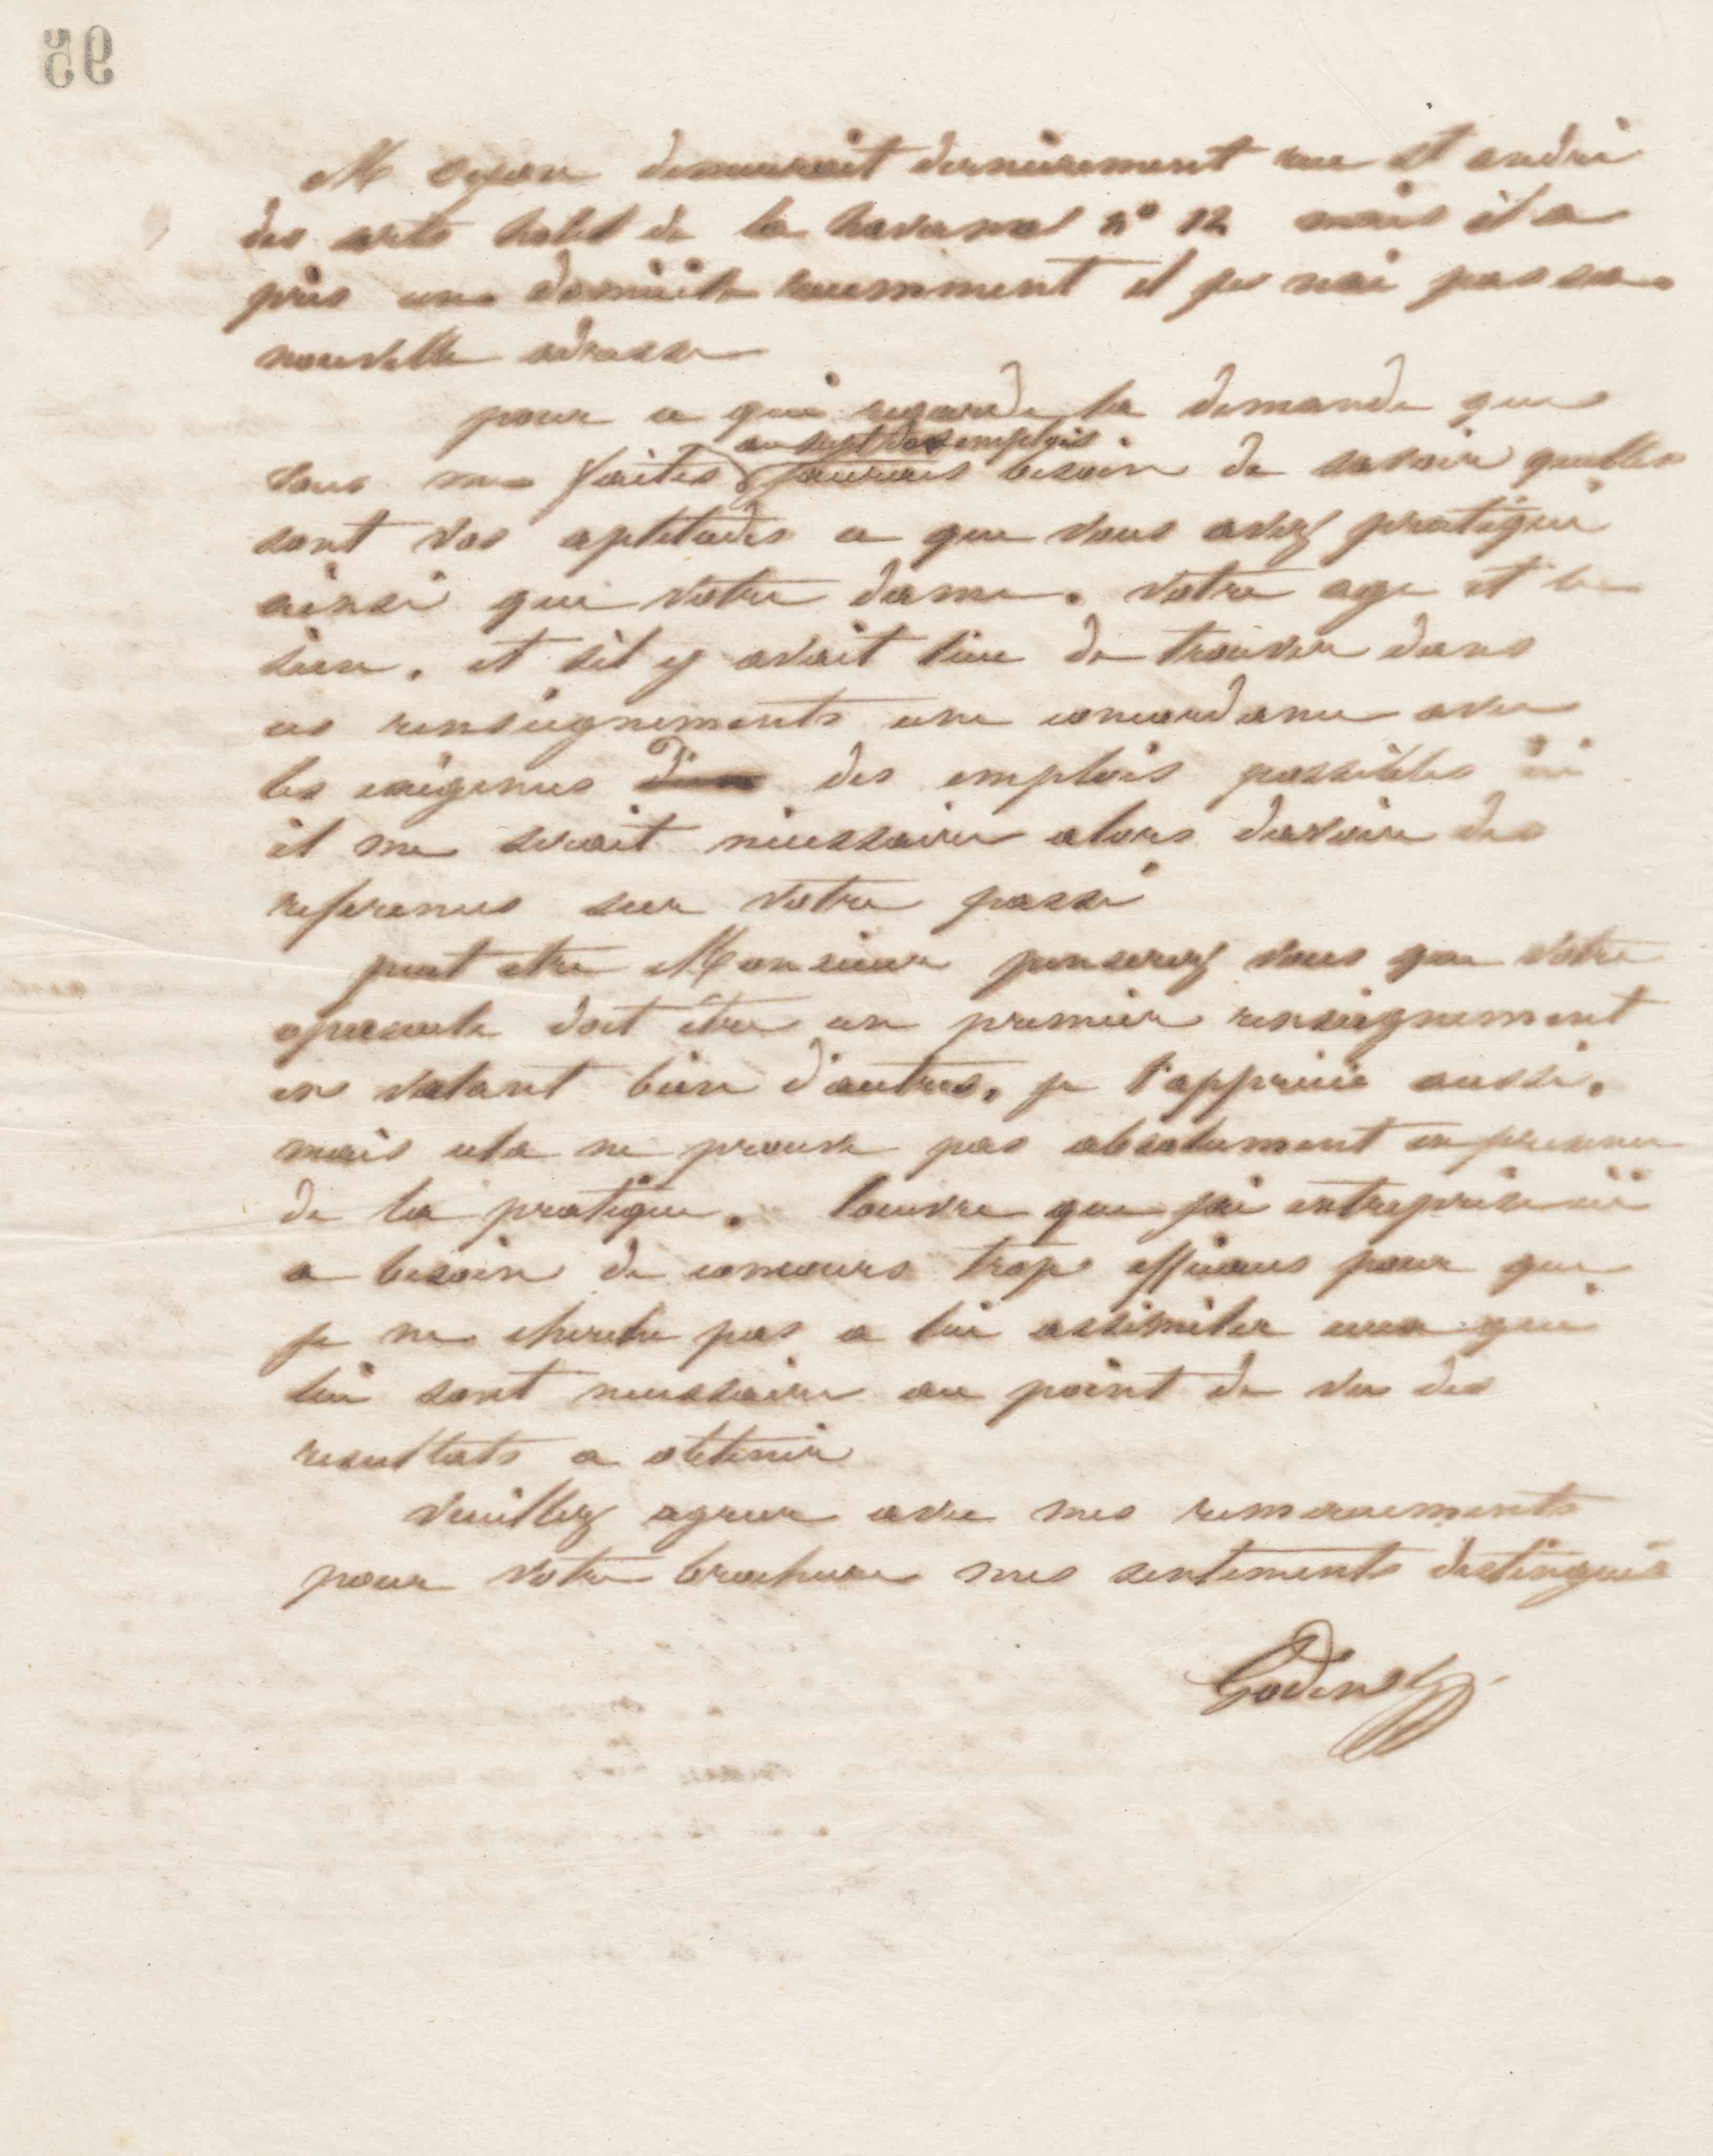 95
M Oyon demeurait dernièrement rue St andré
des arts hotel de la havane n° 12 mais il a
pris un domicile recemment et je nai pas sa
nouvelle adresse
pour ce qui regarde la demande que
vous me faites au sujet des emplois
jaurais besoin de savoir quelles
sont vos aptitudes ce que vous avez pratiqué
ainsi que votre dame. votre age et le
sien. et sil y avait lieu de trouver dans
ces renseignements une concordance avec
les exigences des emplois possibles ici
il me serait nécessaire alors davoir des
references sur votre passé
peut etre Monsieur penserez vous que votre
opuscule doit être un premier renseignement
en valant bien d'autres, je l'apprécie aussi,
mais cela ne prouve pas absolument en presence
de la pratique. loeuvre que jai entreprise ici
a besoin de concours trop efficaces pour que
je ne cherche pas a lui assimiler ceux qui
lui sont necessaire au point de vue des
resultats a obtenir
Veuillez agreer avec mes remerciements
pour votre brochure mes sentiments distingués
Godin